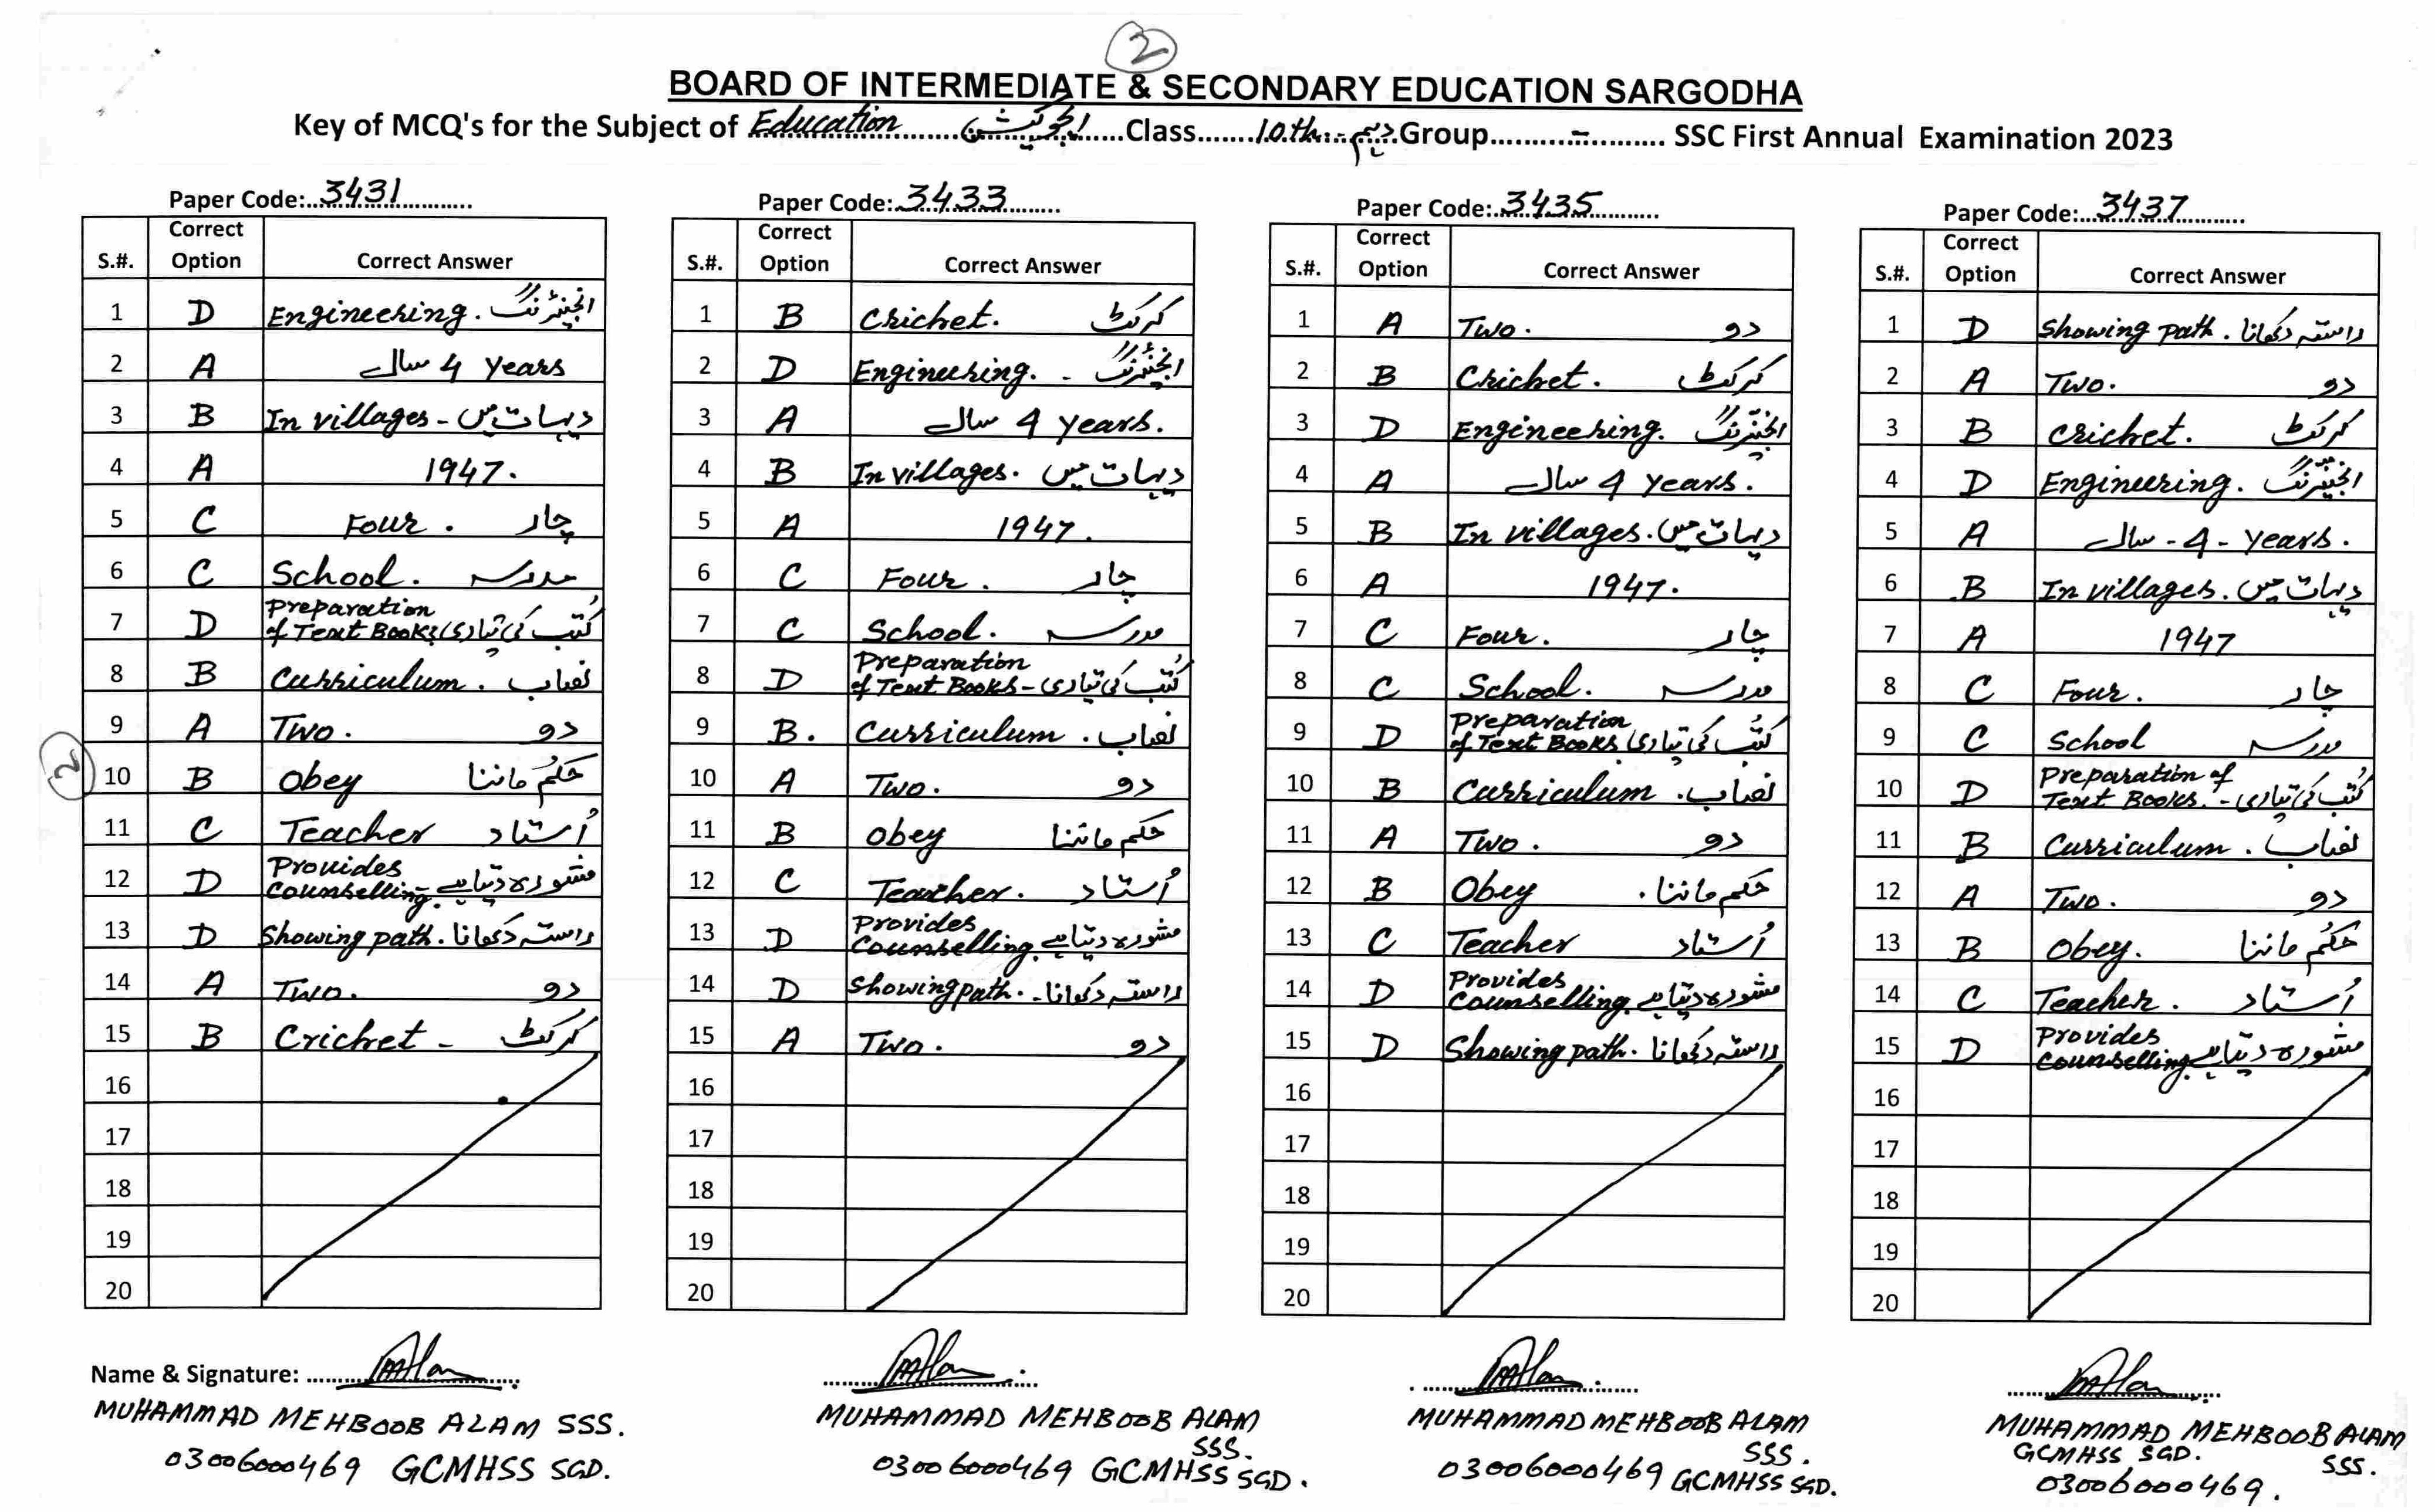 2
BOARD OF INTERMEDIATE & SECONDARY EDUCATION SARGODHA
Key of MCQ's for the Subject of Education ایجوکیشن Class 10th دہم Group - SSC First Annual Examination 2023
Paper Code: 3431
S.#. Correct Option Correct Answer
1 D Engineering. انجینئرنگ
2 A 4 سال years
3 B In villages - دیہات میں
4 A 1947.
5 C Four. چار
6 C School. مدرسہ
7 D Preparation of Text Books کُتب کی تیاری
8 B Curriculum. نصاب
9 A Two. دو
2
10 B Obey حکم ماننا
11 C Teacher اُستاد
12 D Provides Counselling. مشورہ دیتا ہے
13 D Showing path. راستہ دکھانا
14 A Two. دو
15 B Cricket - کرکٹ
16
17
18
19
20
Name & Signature:
MUHAMMAD MEHBOOB ALAM SSS.
03006000469 GCMHSS SGD.
Paper Code: 3433
S.#. Correct Option Correct Answer
1 B Cricket. کرکٹ
2 D Engineering. - انجینئرنگ
3 A 4 سال years.
4 B In villages. دیہات میں
5 A 1947.
6 C Four. چار
7 C School. مدرسہ
8 D Preparation of Text Books - کُتب کی تیاری
9 B. Curriculum. نصاب
10 A Two. دو
11 B Obey حکم ماننا
12 C Teacher. اُستاد
13 D Provides Counselling. مشورہ دیتا ہے
14 D Showing path. - راستہ دکھانا
15 A Two. دو
16
17
18
19
20
MUHAMMAD MEHBOOB ALAM
SSS.
03006000469 GCMHSS SGD.
Paper Code: 3435
S.#. Correct Option Correct Answer
1 A Two. دو
2 B Cricket. کرکٹ
3 D Engineering. انجینئرنگ
4 A 4 سال years.
5 B In villages. دیہات میں
6 A 1947.
7 C Four. چار
8 C School. مدرسہ
9 D Preparation of Text Books کُتب کی تیاری
10 B Curriculum. نصاب
11 A Two. دو
12 B Obey حکم ماننا.
13 C Teacher اُستاد
14 D Provides Counselling. مشورہ دیتا ہے
15 D Showing path. راستہ دکھانا
16
17
18
19
20
MUHAMMAD MEHBOOB ALAM
SSS.
03006000469 GCMHSS SGD.
Paper Code: 3437
S.#. Correct Option Correct Answer
1 D Showing path. راستہ دکھانا
2 A Two. دو
3 B Cricket. کرکٹ
4 D Engineering. انجینئرنگ
5 A سال - 4 - years.
6 B In villages. دیہات میں
7 A 1947
8 C Four. چار
9 C School مدرسہ
10 D Preparation of Text Books. - کُتب کی تیاری
11 B Curriculum. نصاب
12 A Two. دو
13 B Obey. حکم ماننا
14 C Teacher. اُستاد
15 D Provides Counselling. مشورہ دیتا ہے
16
17
18
19
20
MUHAMMAD MEHBOOB ALAM
GCMHSS SGD. SSS.
03006000469.